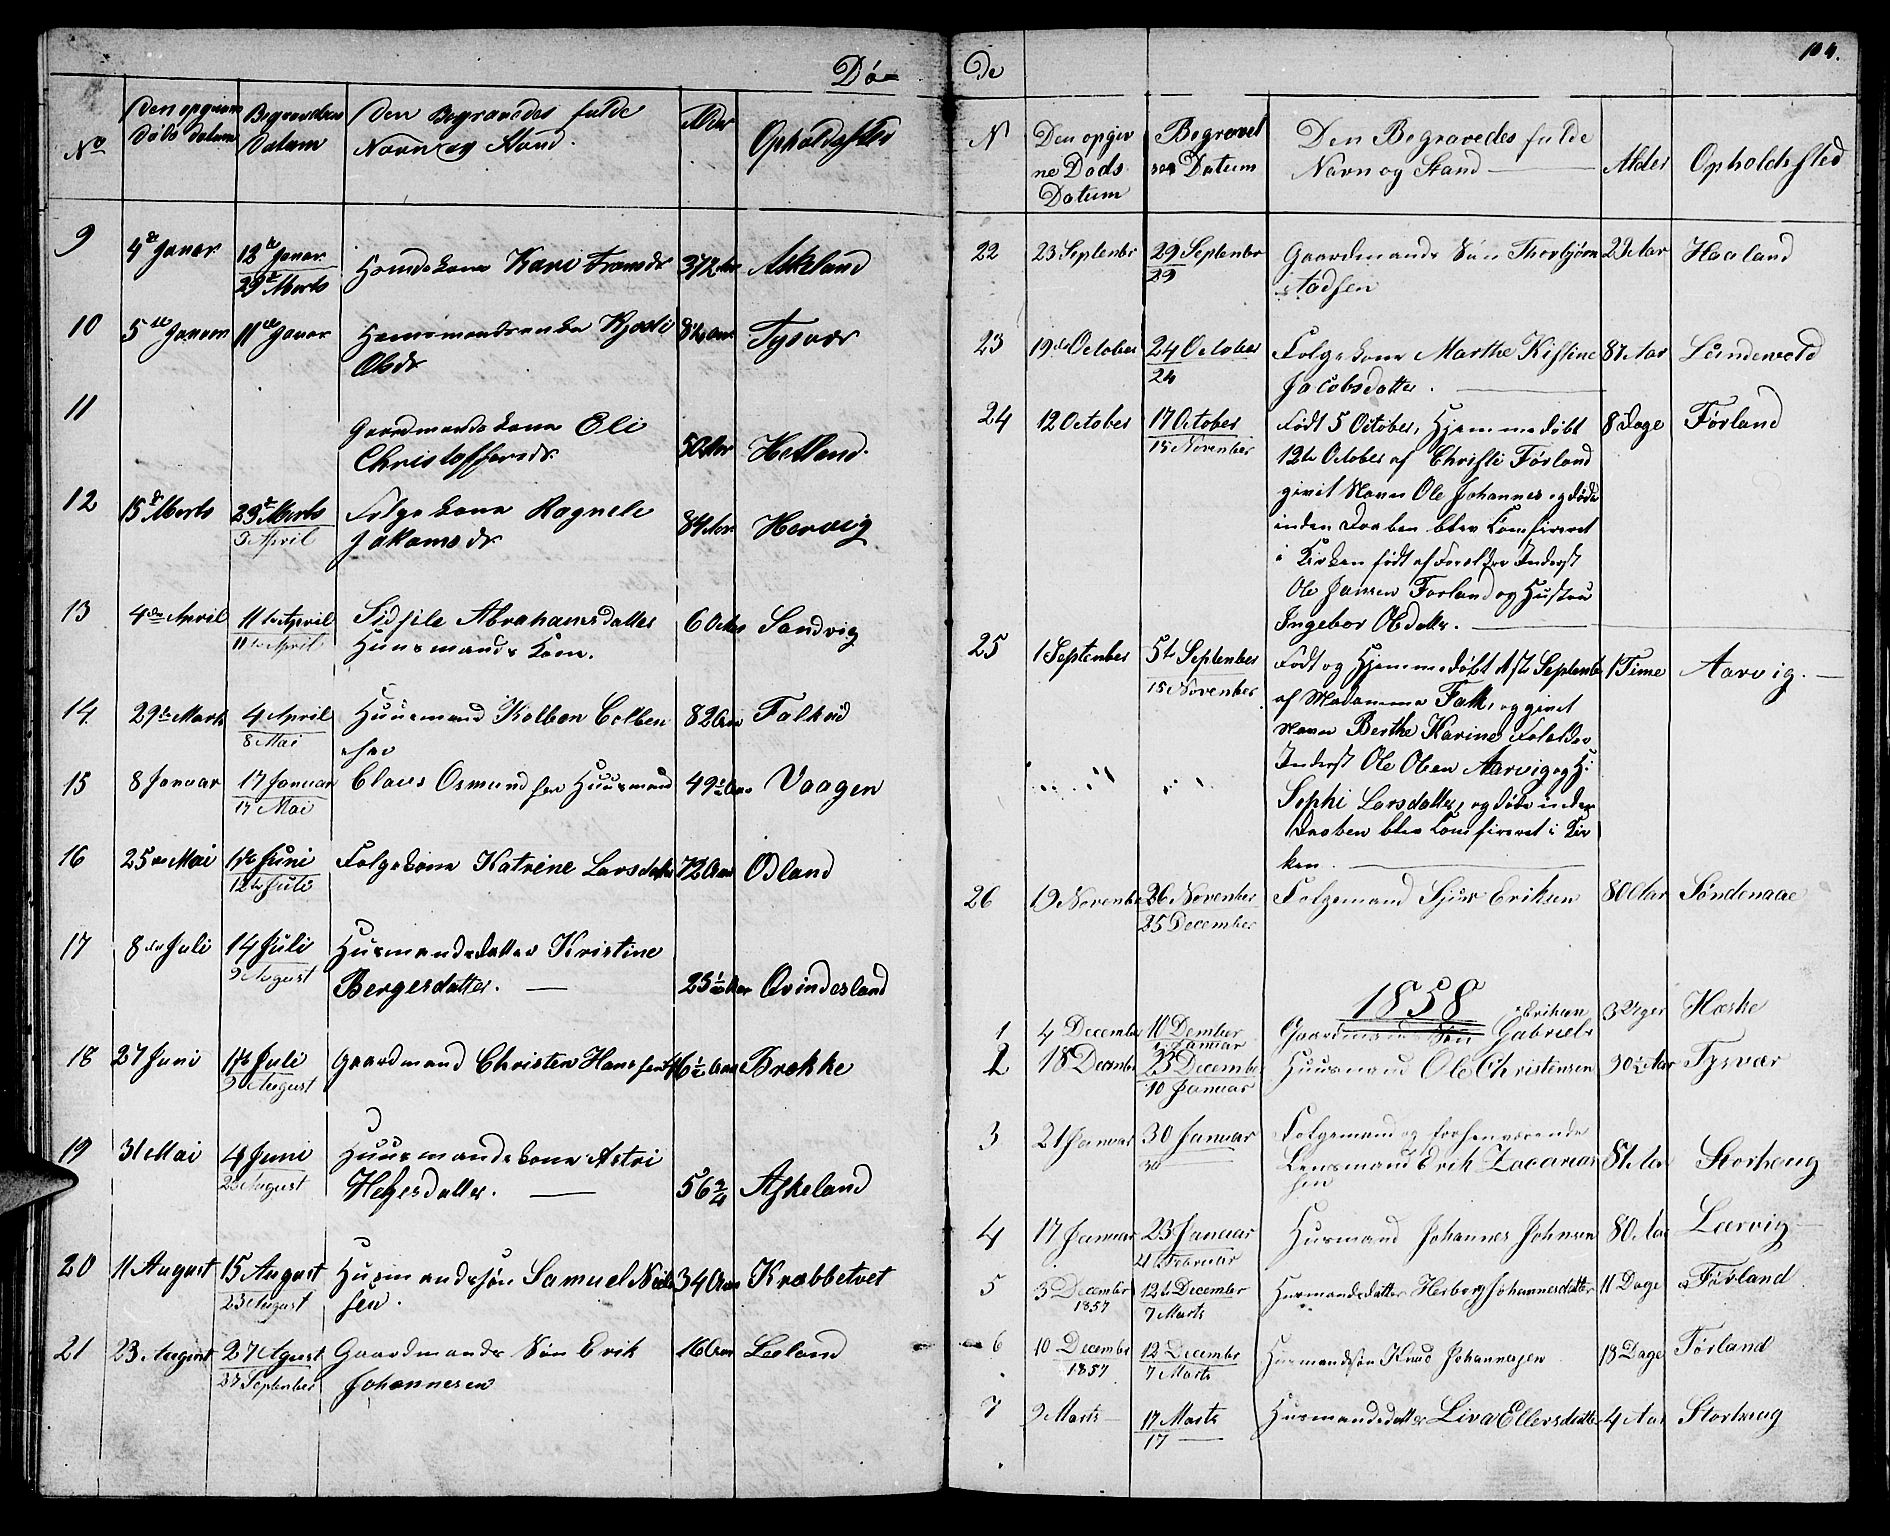 Dø-
No
Den opgivne
Døds datum
Begravelses
Datum
Den Begravedes fulde
Navn og Stand.
Alder
Opholdssted
9
4de Januar
18de Januar
29de Marts
Kone Kari
37½ Aar
Askeland
10
5te Januar
11te Januar
Olsdr
Tysvær
11
Gaardmandskone Eli
Christoffersdr.
50 Aar
Hetland.
12
15de Marts
29de Marts
5 April
Folgekone Ragnele
Jakamsdr
84 Aar
Hervig
13
4de April
11te April
11te April
Sidsele Abrahamsdatter
Huusmands Kone.
60 Aar
Sandvig
14
29de Marts
4 April
8 Mai
Huusmand Kolben Colben
sen
82 Aar
Falkeid
15
8 Januar
17 Januar
17 Mai
Claus Osmundsen Huusmand
49½ Aar
Vaagen
16
25de Mai
1te Juni
12te Juli
Folgekone Katrine Larsdatter
72 Aar
Odland
17
8de Juli
14 Juli
9 August
Husmandsdatter Kristine
Bergesdatter. —
Aar
Qvindesland
18
27 Juni
1te Juli
9 August
Gaardmand Christen Hansen
46½ Aar
Brekke
19
31 Mai
4 Juni
23 August
Huusmandskone Astri
Helgesdatter. —
56¾
Askeland
20
11 August
15 August
23 August
Husmandssøn Samuel Niels
sen.
34 Aar
Krabbetvet
21
23 August
27 Agust
27 September
Gaardmands Søn Erik
Johannesen
16 Aar
Leland
104.
de
N
Den opgiv
ne Døds
Datum
Begravel
ses Datum
Den Begravedes fulde
Navn og Stand —
Alder
Opholdssted
22
23 Septembr
29 Septembr
29
Gaardmands Søn Thorbjørn
23 Aar
Haaland
23
19de October
24 October
24
Folgekone Marthe Kistine
Jacobsdatter. —
87 Aar
Lundevold
24
12 October
17 October
15 November
Født 5 October, Hjemmedøbt
12te October af Christi Førland
givet Navn Ole Johannes og døde
inden Daaben blev Comfireret
i Kirken født af Forældre Inderst
Ole Jansen Førland og Hustru
Ingebor Olsdatter. —
8 Dage
Førland
25
1 September
5te September
15 November
Født og Hjemmedøbt 1ste Septemb
af Madamme Falk, og givet
Navn Berthe Karine Forældre
Inderst Ole Olsen Aarvig og H:
Sophi Larsdatter, og døde inden
Daaben blev Comfireret i Kir
ken. —
1 Time
Aarvig. —
26
19 Novembe
26 November
25 December
Folgemand Sjur Eriksen
80 Aar
Søndenaae
1858
1
4 December
11 Dember
Januar
Gaardmands Søn Gabriel
Eriksen
3 Uger
Hæske
2
18 Decembr
23 Decembe
10 Januar
Huusmand Ole Christensen
30½ Aar
Tysvær
3
21 Januar
30 Januar
30
Folgemand og forhenværende
Lensmand Erik Zacarias
sen
81 Aar
Storhaug
4
17 Januar
23 Januar
4de Februar
Husmand Johannes Johnsen
80 Aar
Lærvig —
5
3 December
1857
12te Decembr
7 Marts
Husmandsdatter Herborg Johannesdatter
11 Dage
Førland
6
10 Decembr
1857
12 Decembr
7 Marts
Husmandssøn Knud Johannesen
18 Dage
Førland
7
9 Marts
17 Marts
17 —
Husmandsdatter Liva Ellersdatter
4 Aar
Storhaug